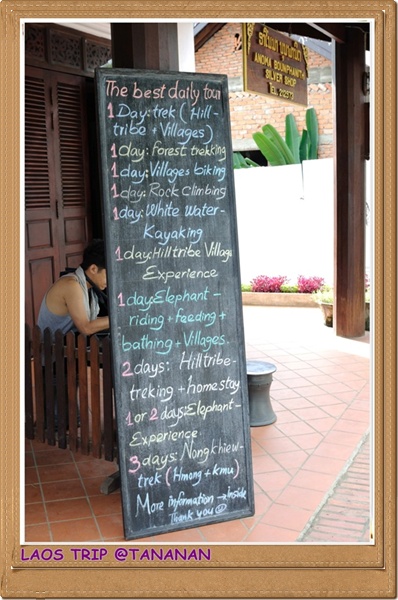 ANOMA BOUNPHANITH
SILVER SHOP
The best daily tour
1 Day: trek (Hill-
tribe + Villages)
1 day: Forest trekking
1 day: Villages biking
1 day: Rock Climbing
1 day: White Water-
Kayaking
1 day: Hilltribe Village
Experience
1 day: Elephant -
riding + feeding +
bathing + Villages.
2 days: Hilltribe-
treking + homestay
1 or 2 days: Elephant-
Experience
3 days: Nongkhiew-
trek (Hmong + kmu)
More information → Inside
Thank you ☺
LAOS TRIP @TANANAN